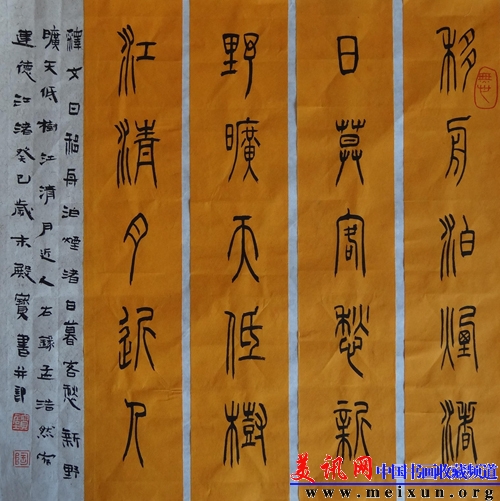 移舟泊煙渚
日莫客愁新
野曠天低樹
江清月近人
釋文曰移舟泊煙渚日暮客愁新野
曠天低樹江清月近人右錄孟浩然宿
建德江渚癸巳歲末殿寶書并記
美讯网 中国书画收藏频道
www.meixun.org